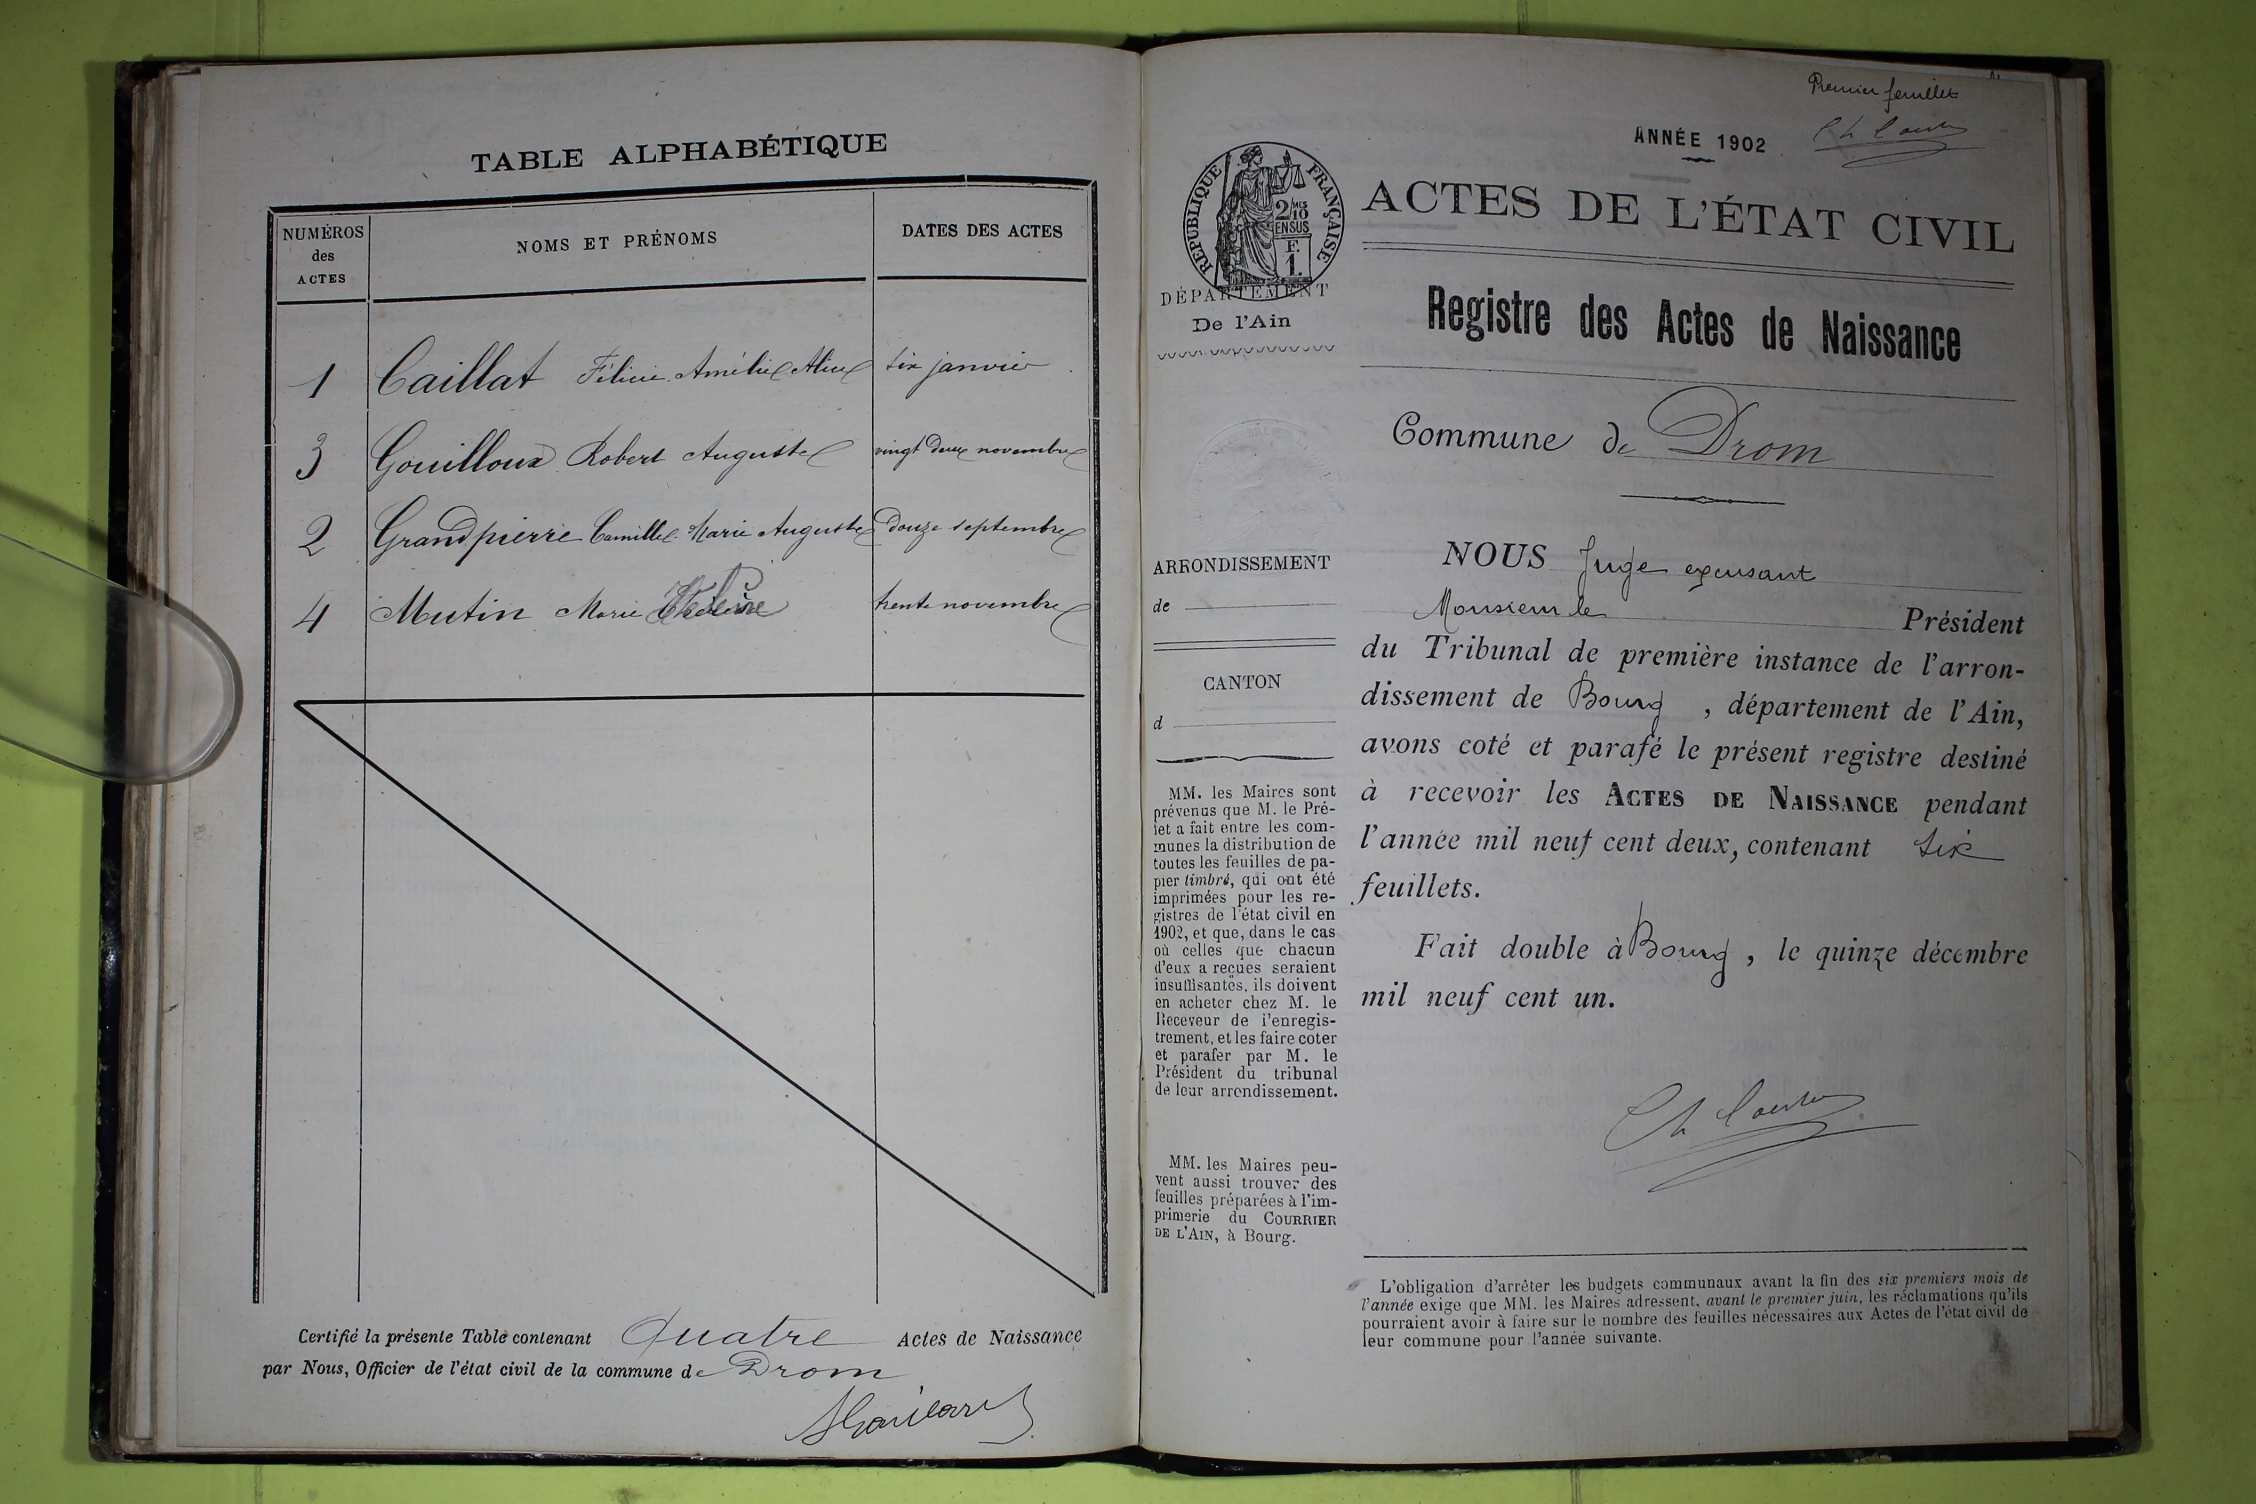 TABLE ALPHABÉTIQUE
NUMÉROS
des
ACTES
NOMS ET PRÉNOMS
DATES DES ACTES
1 Caillat Félicie Amélie Aline six janvier
3 Gouilloux Robert Auguste vingt deux novembre
2 Grandpierre Camille Marie Auguste douze septembre
4 Mutin Marie trente novembre
Certifié la présente Table contenant Quatre Actes de Naissance
par Nous, Officier de l'état civil de la commune de Drom
Premier feuillet
ANNÉE 1902
RÉPUBLIQUE FRANÇAISE
2/10 MES
EN SUS
F.
1.
DÉPARTEMENT
De l'Ain
ACTES DE L'ÉTAT CIVIL
Registre des Actes de Naissance
Commune de Drom
ARRONDISSEMENT
de
CANTON
d
MM. les Maires sont
prévenus que M. le Pré-
fet a fait entre les com-
munes la distribution de
toutes les feuilles de pa-
pier timbré, qui ont été
imprimées pour les re-
gistres de l'état civil en
1902, et que, dans le cas
où celles que chacun
d'eux a reçues seraient
insuffisantes, ils doivent
en acheter chez M. le
Receveur de l'enregis-
trement, et les faire coter
et parafer par M. le
Président du tribunal
de leur arrondissement.
MM. les Maires peu-
vent aussi trouver des
feuilles préparées à l'im-
primerie du COURRIER
DE L'AIN, à Bourg.
NOUS Juge excusant
Monsieur le Président
du Tribunal de première instance de l'arron-
dissement de Bourg , département de l'Ain,
avons coté et parafé le présent registre destiné
à recevoir les ACTES DE NAISSANCE pendant
l'année mil neuf cent deux, contenant six
feuillets.
Fait double à Bourg , le quinze décembre
mil neuf cent un.
L'obligation d'arrêter les budgets communaux avant la fin des six premiers mois de
l'année exige que MM. les Maires adressent, avant le premier juin, les réclamations qu'ils
pourraient avoir à faire sur le nombre des feuilles nécessaires aux Actes de l'état civil de
leur commune pour l'année suivante.